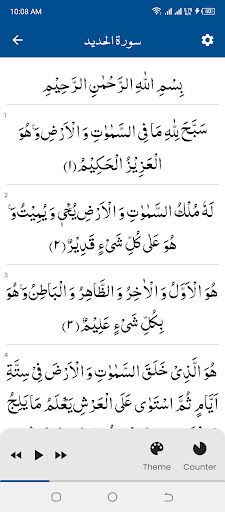 10:08 AM
سورة الحديد
بِسْمِ اللهِ الرَّحْمٰنِ الرَّحِيْمِ
1
سَبَّحَ لِلّٰهِ مَا فِى السَّمٰوٰتِ وَ الْاَرْضِۚ وَ هُوَ
الْعَزِيْزُ الْحَكِيْمُ (١)
2
لَهٗ مُلْكُ السَّمٰوٰتِ وَ الْاَرْضِۚ يُحْيٖ وَ يُمِيْتُۚ وَ
هُوَ عَلٰى كُلِّ شَیْءٍ قَدِيْرٌ (٢)
3
هُوَ الْاَوَّلُ وَ الْاٰخِرُ وَ الظَّاهِرُ وَ الْبَاطِنُۚ وَ هُوَ
بِكُلِّ شَیْءٍ عَلِيْمٌ (٣)
4
هُوَ الَّذِیْ خَلَقَ السَّمٰوٰتِ وَ الْاَرْضَ فِیْ سِتَّةِ
اَيَّامٍ ثُمَّ اسْتَوٰى عَلَى الْعَرْشِؕ يَعْلَمُ مَا يَلِجُ
Theme
Counter